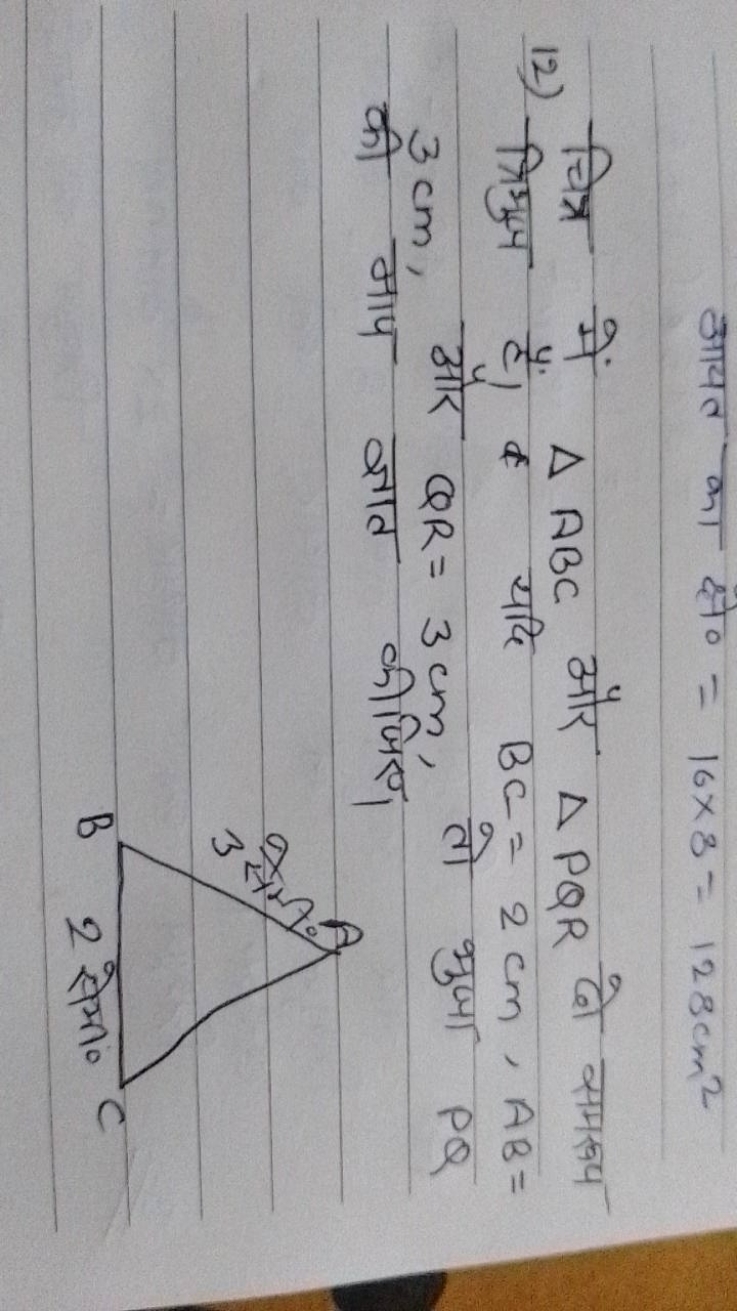 आयत का क्षे० = 16×8 = 128cm²
12) चित्र में Δ ABC और Δ PQR दो समरूप
त्रिभुज हैं। यदि BC = 2 cm, AB =
3 cm, और QR = 3 cm, तो भुजा PQ
की माप ज्ञात कीजिए।
A
3 सेमी०
B
2 सेमी०
C